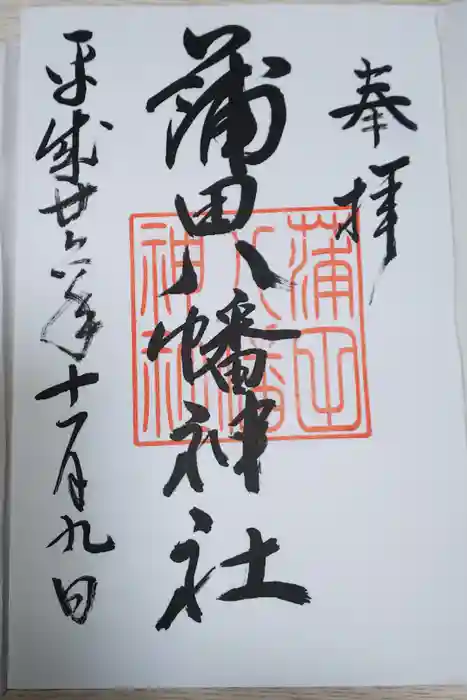 奉拝
蒲田八幡神社
蒲田
八幡
神社
平成廿六年十一月九日